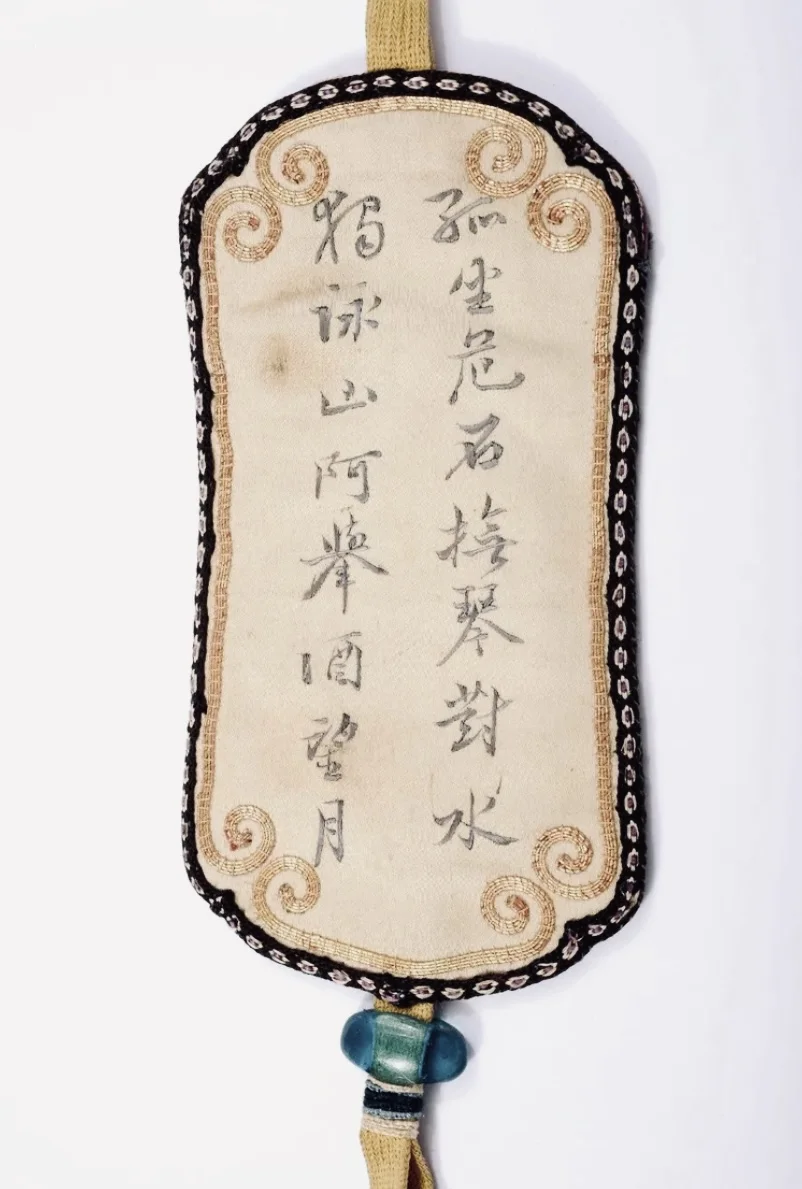 孤坐危石撫琴對水
獨詠山阿舉酒望月